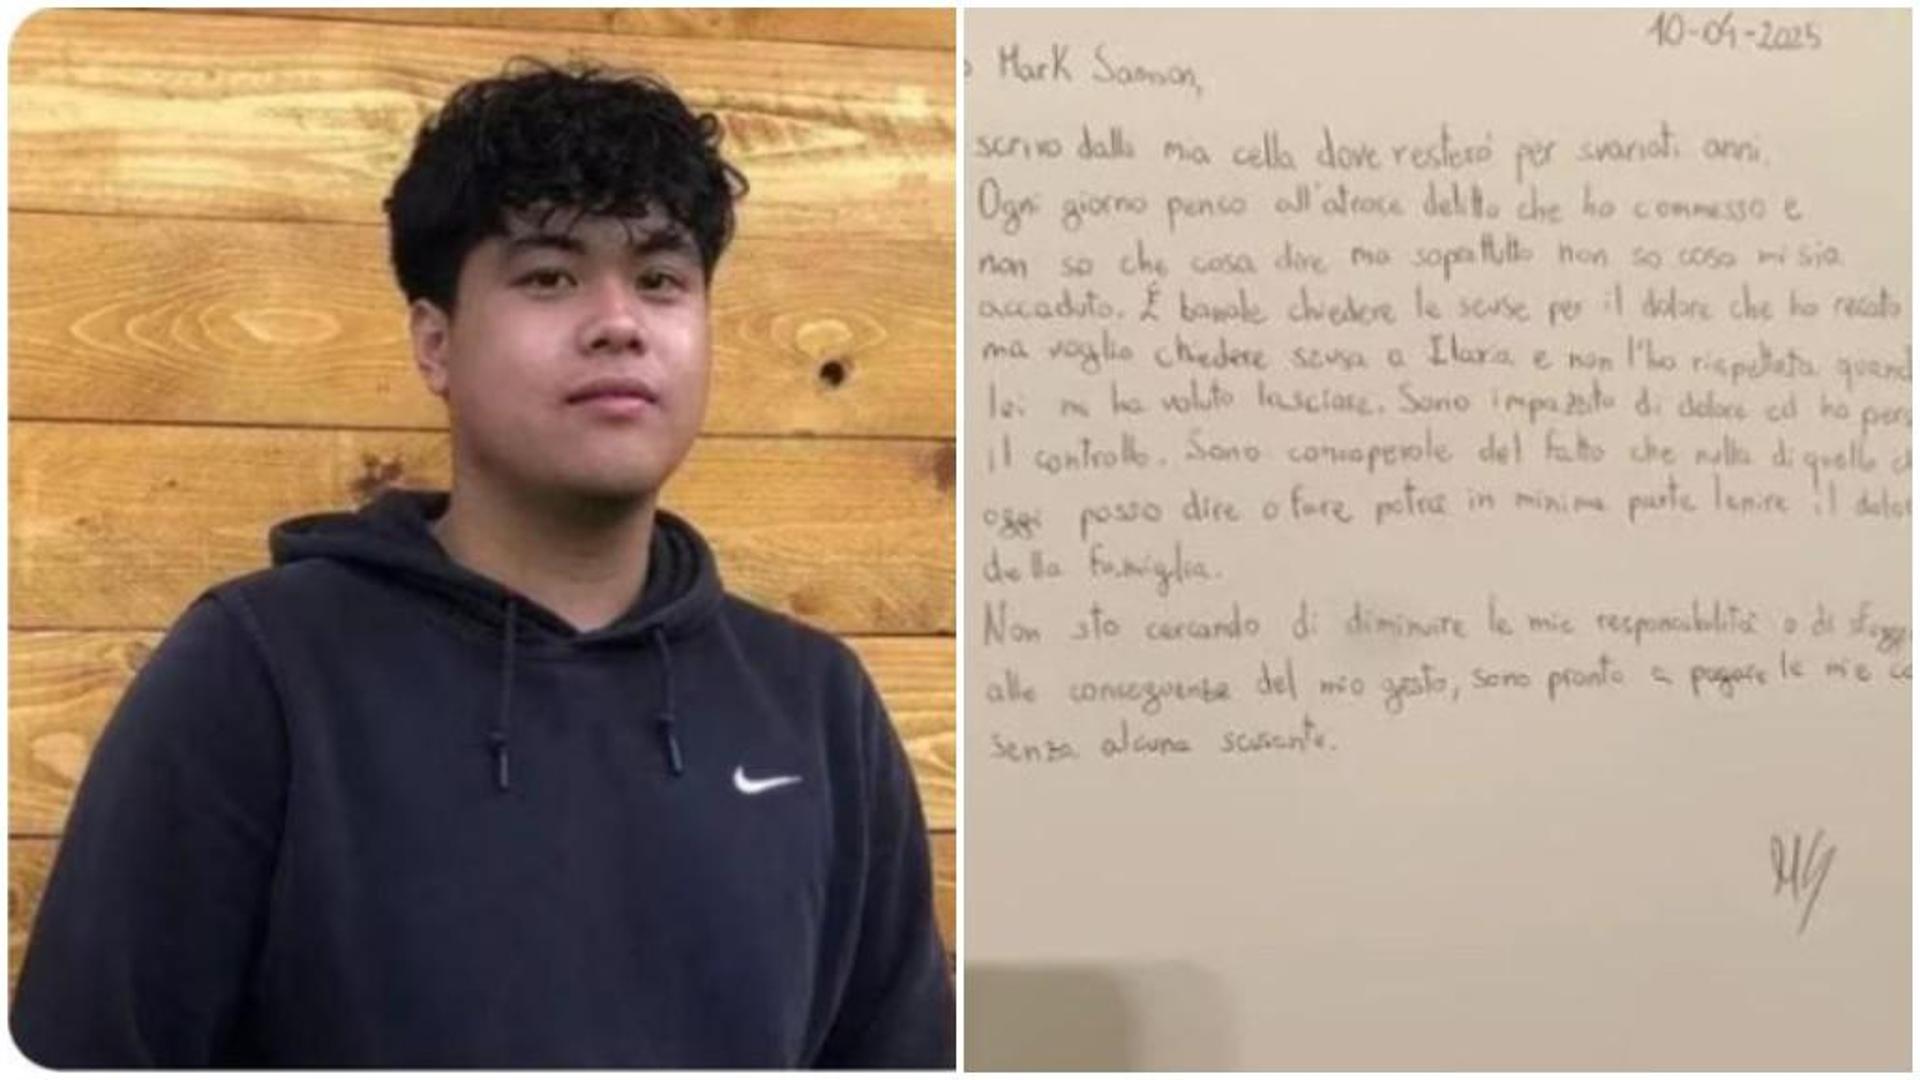 10-04-2025
Mark Samson,
scrivo dalla mia cella dove resterò per svariati anni.
Ogni giorno penso all'atroce delitto che ho commesso e
non so che cosa dire ma soprattutto non so cosa mi sia
accaduto. È banale chiedere le scuse per il dolore che ho recato
ma voglio chiedere scusa a Ilaria e non l'ho rispettata quand
lei mi ha voluto lasciare. Sono impazzito di dolore ed ho pers
il controllo. Sono consapevole del fatto che nulla di quello c
oggi posso dire o fare potrà in minima parte lenire il dolor
della famiglia.
Non sto cercando di diminuire le mie responsabilità o di sfugg
alle conseguenze del mio gesto, sono pronto a pagare le mie co
senza alcuna scusante.
MS